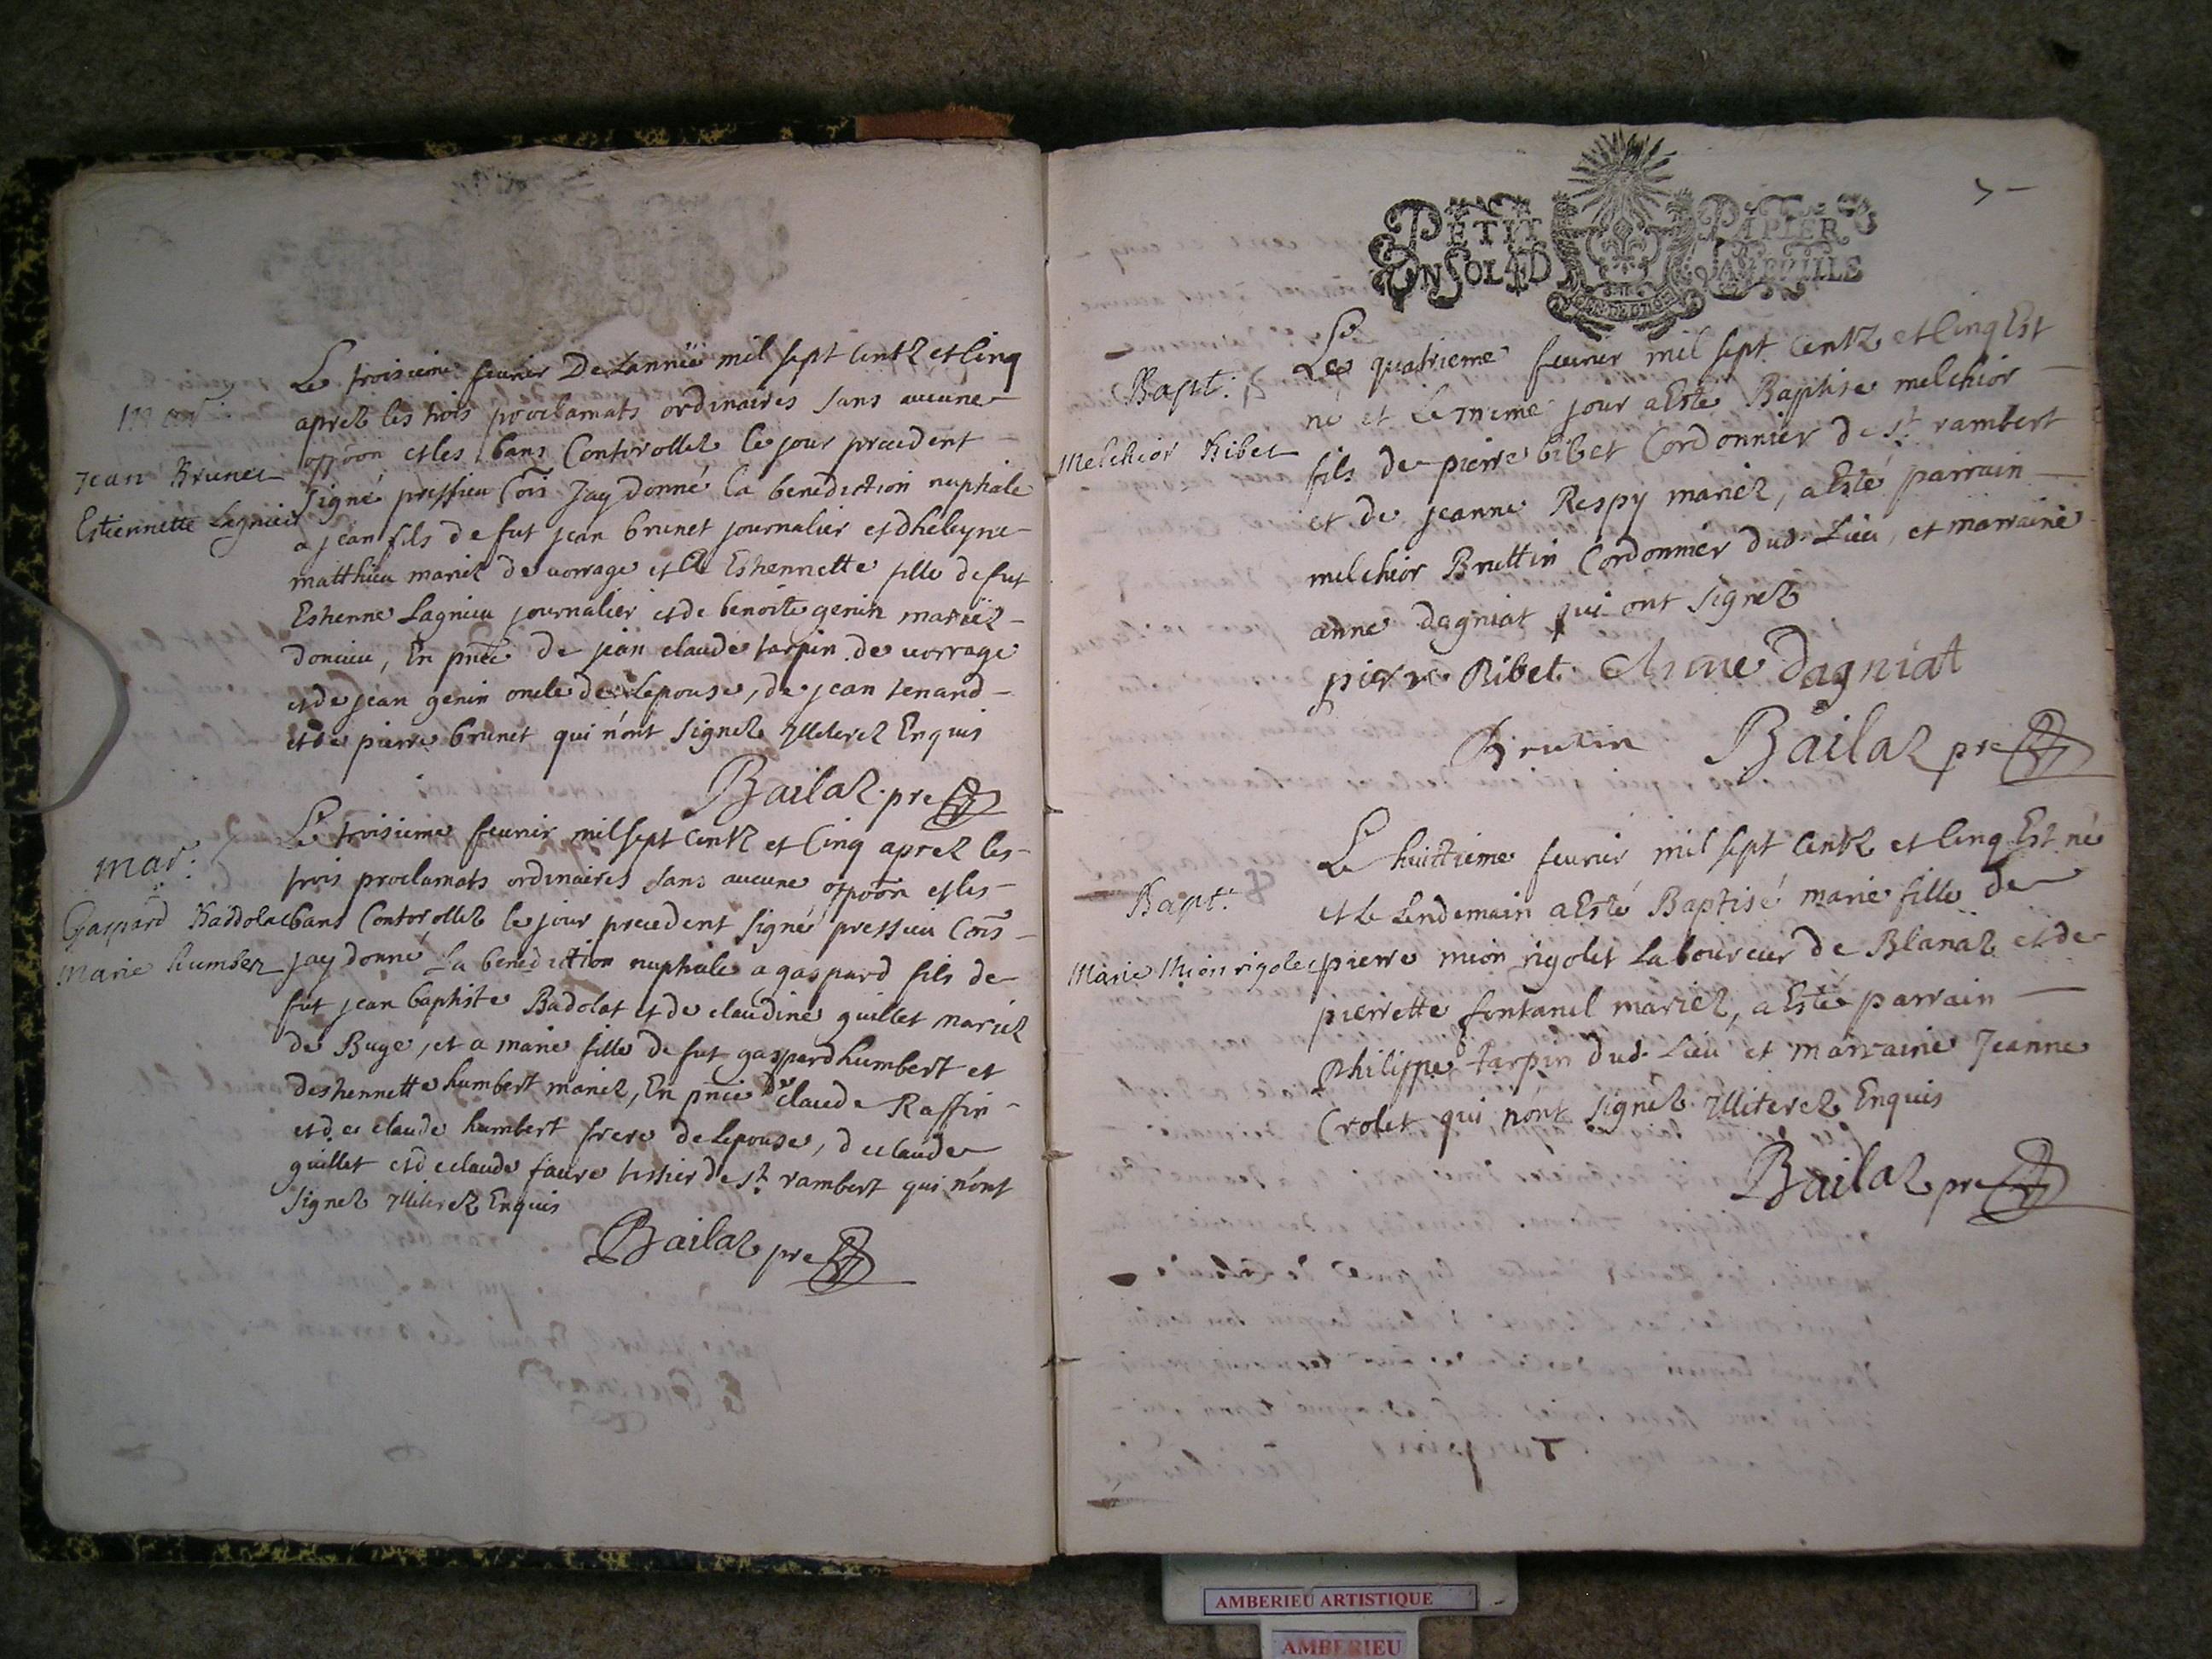 mar.
Jean Brunet
Estiennette Lagnieu
Le troisieme feurier De Lannëe mil sept centz et Cinq
aprez les trois proclamats ordinaires sans aucune
oppoon et les bans Controollez le jour precedent
signé pressieu Cõis Jay donné la benediction nuptiale
a jean fils de fut jean brunet journalier et dheleyne
matthieu mariez de vorrage et a Estiennette fille de fut
Estienne Lagnieu journalier et de benoite genin mariëz
doncieu, En pnce de jean claude tarpin de vorrage
et de jean genin oncle de Lepouse, de jean tenand
et de pierre brunet qui nont signez Jlliterez Enquis
Bailaz pre
mar.
Gaspard Baddolat
Marie humbert
Le troisieme feurier mil sept centz et Cinq aprez les
trois proclamats ordinaires sans aucune oppoon et les
bans Controollez le jour precedent signé pressieu Cõis
jay donné La benediction nuptiale a gaspard fils de
fut jean baptiste Badolat et de claudine guillet mariez
de Buge, et a marie fille de fut gaspard humbert et
destiennette humbert mariez, En pnce de claude Raffin
et de claude humbert frere de Lepouse, de claude
guillet et de claude faure tessier de st. rambert qui nont
signez Jlliterez Enquis
Bailaz pre
PETIT PAPIER
UN SOL 4 D LA FEUILLE
Bapt.
Melchior Bibet
Le quatrieme feurier mil sept centz et Cinq Est
né et Le meme jour a Esté Baptise melchior
fils de pierre bibet Cordonnier de st. rambert
et de jeanne Respy mariez, a Esté parrain
melchior Bruttin Cordonnier dud. Lieu, et marraine
anne dagniat qui ont signez
pierre Bibet Anne Dagniat
Brutin Bailaz pre
Bapt.
Marie Mion rigolet
Le huittieme feurier mil sept centz et Cinq Est né
et Le Lendemain a Esté Baptisé marie fille de
pierre mion rigolet Laboureur de Blanaz et de
pierrette fontanel mariez, a Esté parrain
Philippe tarpin dud. Lieu et marraine Jeanne
Crolet qui nont signez Jlliterez Enquis
Bailaz pre
AMBERIEU ARTISTIQUE
AMBERIEU